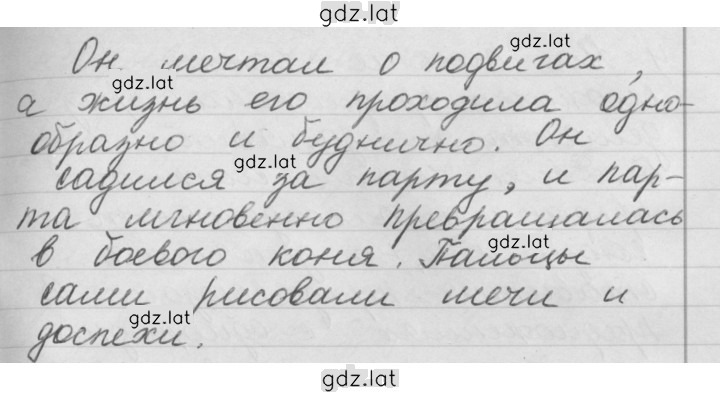 gdz.lat
Он мечтал о подвигах,
gdz.lat
gdz.lat
а жизнь его проходила одно-
образно и буднично. Он
gdz.lat
садился за парту, и пар-
та мгновенно превращалась
в боевого коня. Пальцы
gdz.lat
сами рисовали мечи и
доспехи.
gdz.lat
gdz.lat